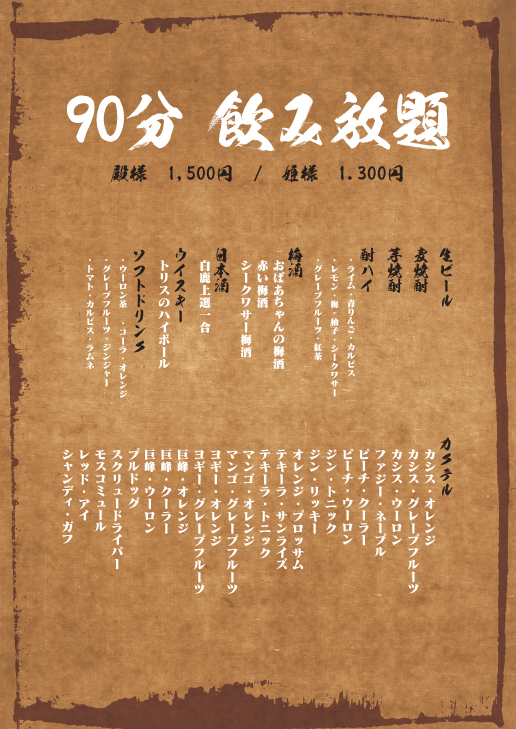 90分 飲み放題
殿様 1,500円 / 姫様 1.300円
生ビール
麦焼酎
芋焼酎
酎ハイ
・ライム・青りんご・カルピス
・レモン・梅・柚子・シークワサー
・グレープフルーツ・紅茶
梅酒
おばあちゃんの梅酒
赤い梅酒
シークワサー梅酒
日本酒
白鹿上選一合
ウイスキー
トリスのハイボール
ソフトドリンク
・ウーロン茶 ・コーラ・オレンジ
・グレープフルーツ・ジンジャー
・トマト・カルピス・ラムネ
カクテル
カシス・オレンジ
カシス・グレープフルーツ
カシス・ウーロン
ファジー・ネーブル
ピーチ・クーラー
ピーチ・ウーロン
ジン・トニック
ジン・リッキー
オレンジ・ブロッサム
テキーラ・サンライズ
テキーラ・トニック
マンゴ・オレンジ
マンゴ・グレープフルーツ
ヨギー・オレンジ
ヨギー・グレープフルーツ
巨峰・オレンジ
巨峰・クーラー
巨峰・ウーロン
ブルドッグ
スクリュードライバー
モスコミュール
レッド・アイ
シャンディ・ガフ